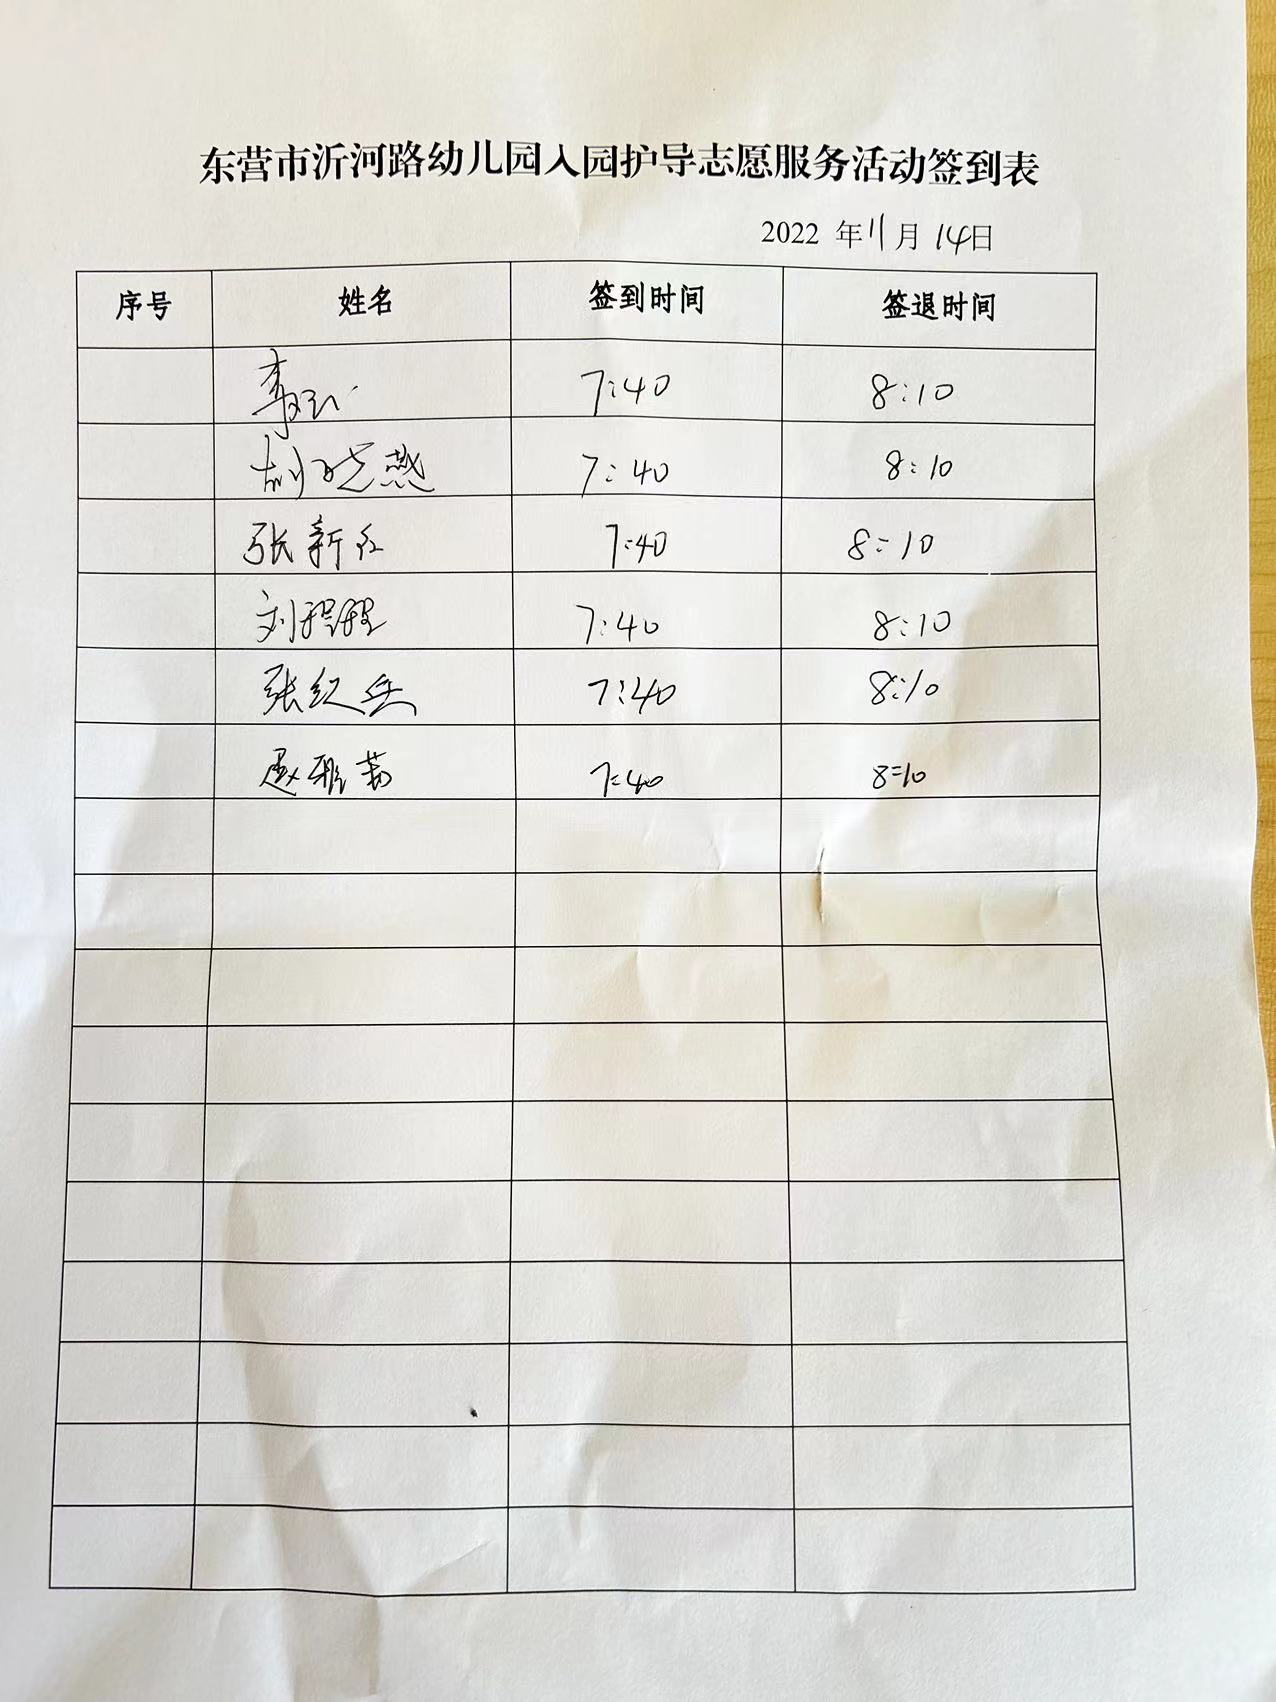 东营市沂河路幼儿园入园护导志愿服务活动签到表
2022 年 11 月 14 日
序号 姓名 签到时间 签退时间
7:40 8:10
胡晓燕 7:40 8:10
张新红 7:40 8:10
刘程程 7:40 8:10
张红兵 7:40 8:10
赵雅茹 7:40 8:10